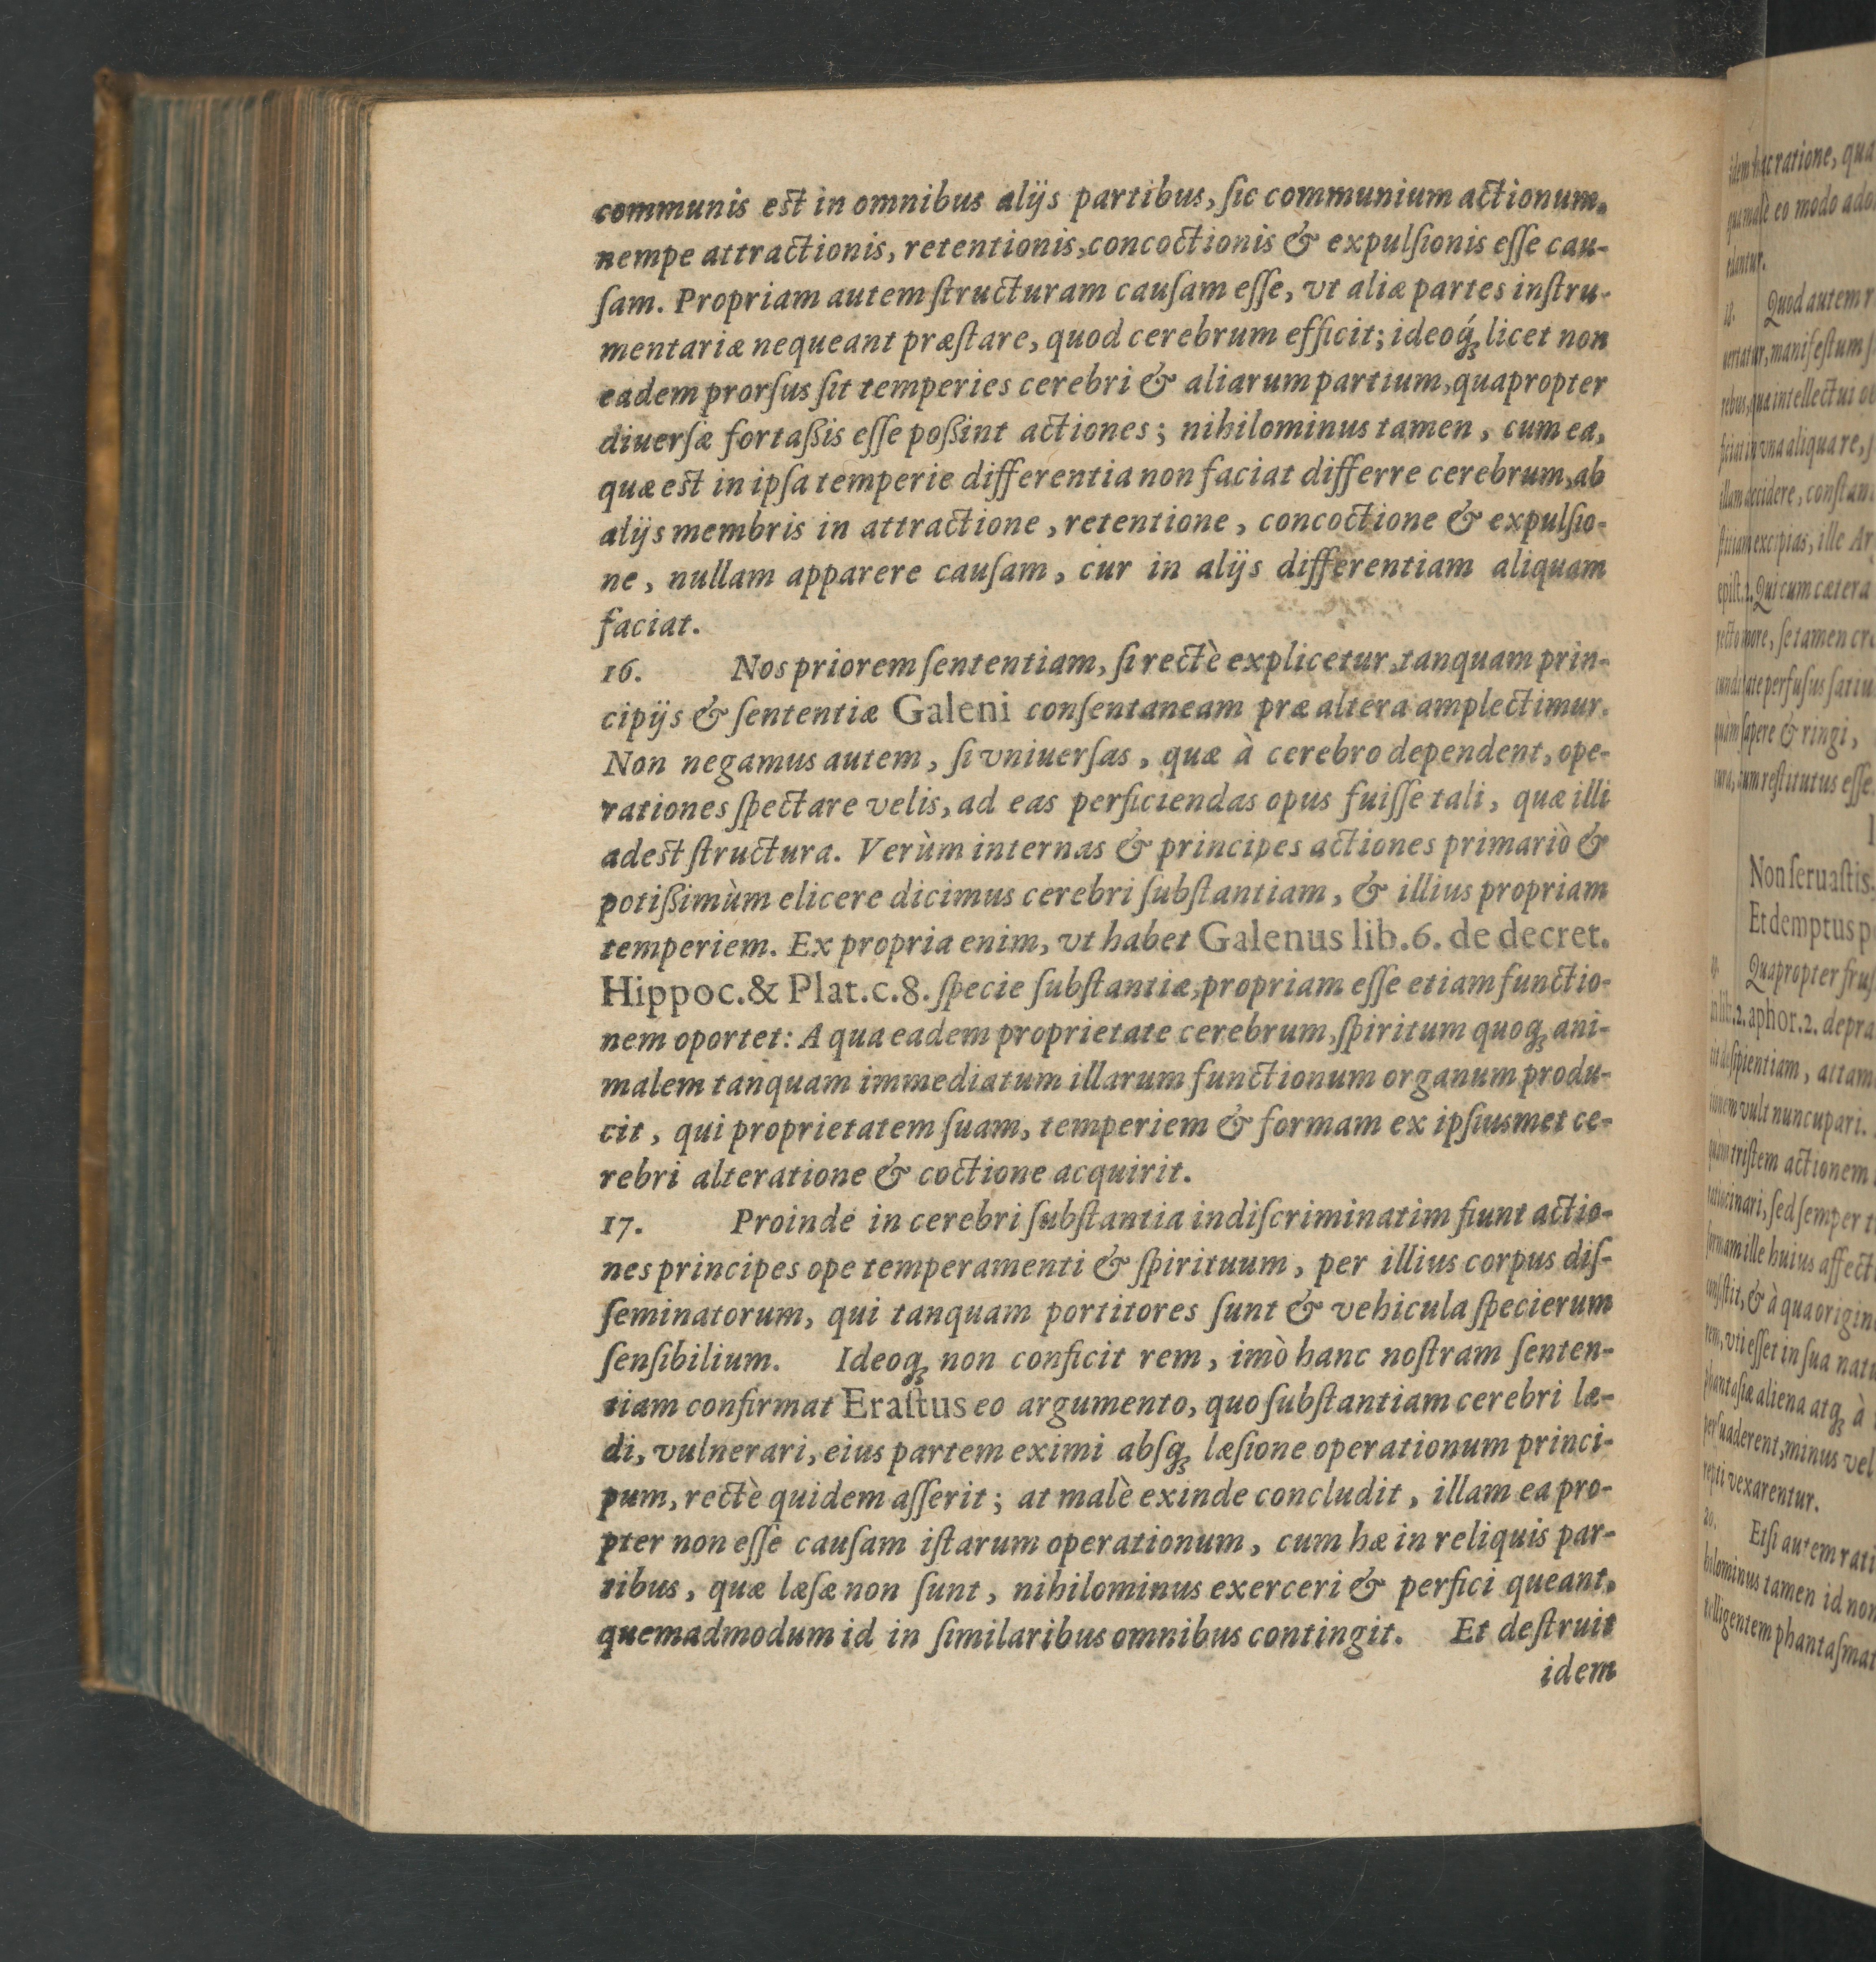 communis est in omnibus alijs partibus, ſic communium actionum,
nempe attractionis, retentionis, concoctionis & expulſionis eſſe cau-
ſam. Propriam autem ſtructuram cauſam eſſe, vt aliæ partes inſtru-
mentariæ nequeant præſtare, quod cerebrum efficit; ideoq́ꝫ licet non
eadem prorſus ſit temperies cerebri & aliarum partium, quapropter
diuerſæ fortaßis eſſe poßint actiones; nihilominus tamen, cum ea,
quæ est in ipſa temperie differentia non faciat differre cerebrum, ab
alijs membris in attractione, retentione, concoctione & expulſio-
ne, nullam apparere cauſam, cur in alijs differentiam aliquam
faciat.
16. Nos priorem ſententiam, ſi rectè explicetur, tanquam prin-
cipijs & ſententiæ Galeni conſentaneam præ altera amplectimur.
Non negamus autem, ſi vniuerſas, quæ à cerebro dependent, ope-
rationes ſpectare velis, ad eas perficiendas opus fuiſſe tali, quæ illi
adest ſtructura. Verùm internas & principes actiones primariò &
potißimùm elicere dicimus cerebri ſubſtantiam, & illius propriam
temperiem. Ex propria enim, vt habet Galenus lib.6. de decret.
Hippoc.& Plat.c.8. ſpecie ſubſtantiæ, propriam eſſe etiam functio-
nem oportet: A qua eadem proprietate cerebrum, ſpiritum quoqꝫ ani-
malem tanquam immediatum illarum functionum organum produ-
cit, qui proprietatem ſuam, temperiem & formam ex ipſiusmet ce-
rebri alteratione & coctione acquirit.
17. Proinde in cerebri ſubſtantia indiſcriminatim fiunt actio-
nes principes ope temperamenti & ſpirituum, per illius corpus diſ-
ſeminatorum, qui tanquam portitores ſunt & vehicula ſpecierum
ſenſibilium. Ideoqꝫ non conficit rem, imò hanc noſtram ſenten-
tiam confirmat Eraſtus eo argumento, quo ſubſtantiam cerebri læ-
di, vulnerari, eius partem eximi abſqꝫ læſione operationum princi-
pum, rectè quidem aſſerit; at malè exinde concludit, illam ea pro-
pter non eſſe cauſam iſtarum operationum, cum hæ in reliquis par-
tibus, quæ læſæ non ſunt, nihilominus exerceri & perfici queant,
quemadmodum id in ſimilaribus omnibus contingit. Et deſtruit
idem
ratione, qua
eo modo
Quod autem
manifeſtum
intellectui
vna aliqua re,
decidere,
excipias, ille
epiſt.2. Qui cum cætera
more, ſe tamen
perfuſus
ſapere & ringi,
reſtitutus eſſe
Non ſeruaſtis
Et demptus
Quapropter
lib.2. aphor.2.
vult nuncupari.
triſtem actionem
ſed ſemper
ille huius
& à qua
eſſet in ſua
aliena atqꝫ à
minus
vexarentur.
20. Etſi autem
tamen id non